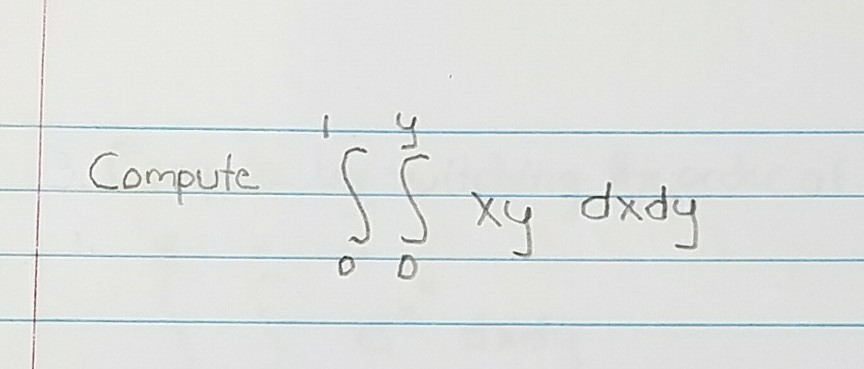 Compute ∫₀¹ ∫₀ʸ xy dxdy